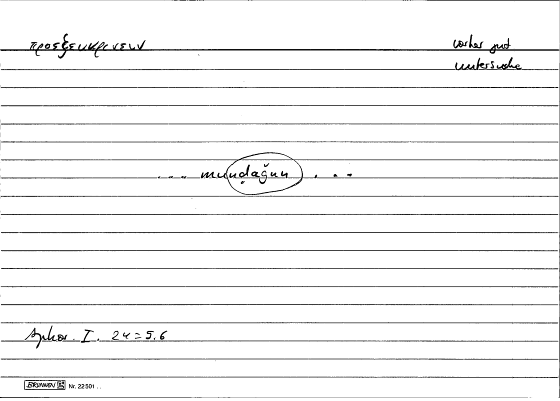 προεξευκρινεων vorher gut
untersuche
... munḍaġun ...
Aphor. I. 24 = 5.6
BRUNNEN Nr. 22501 ..